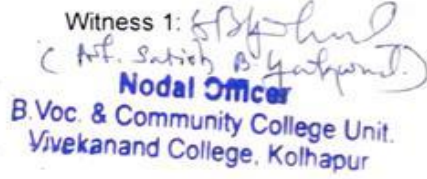 Witness 1:
Satish B
Nodal Officer
B.Voc. & Community College Unit.
Vivekanand College, Kolhapur